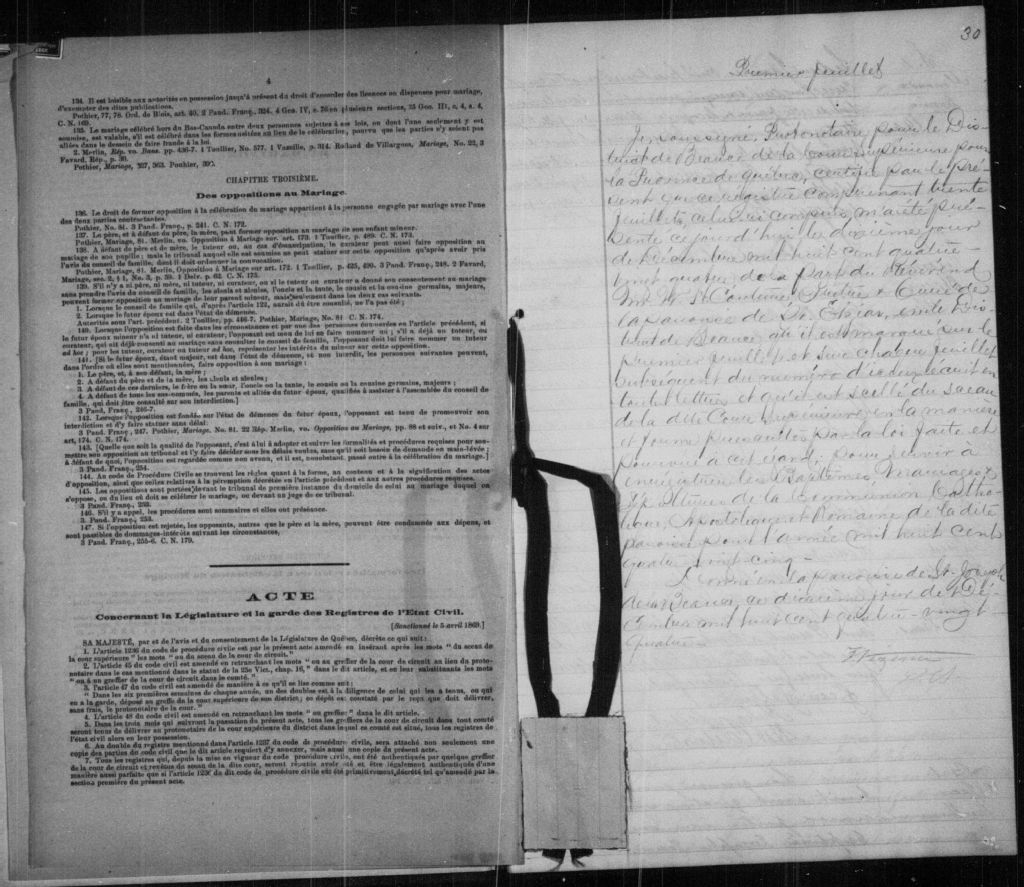 4
134. Il est loisible aux autorités en possession jusqu'à présent du droit d'accorder des licences ou dispenses pour mariage,
d'exempter des dites publications.
Pothier, 77, 78. Ord. de Blois, art. 40. 2 Pand. Franç., 324. 4 Geo. IV, c. 76 en plusieurs sections, 35 Geo. III, c. 4, s. 4,
C. N. 169.
135. Le mariage célébré hors du Bas-Canada entre deux personnes sujettes à ses lois, ou dont l'une seulement y est
soumise, est valable, s'il est célébré dans les formes usitées au lieu de la célébration, pourvu que les parties n'y soient pas
allées dans le dessein de faire fraude à la loi.
2 Merlin, Rép. vo. Bans. pp. 436-7. 1 Toullier, No. 577. 1 Vazille, p. 314. Rolland de Villargues, Mariage, No. 22, 3
Favard, Rép., p. 36.
Pothier, Mariage, 327, 363. Pothier,
CHAPITRE TROISIÈME.
Des oppositions au Mariage.
136. Le droit de former opposition à la célébration du mariage appartient à la personne engagée par mariage avec l'une
des deux parties contractantes.
Pothier, No. 81. 3 Pand. Franç., p. 241. C. N. 172.
137. Le père, et à défaut du père, la mère, peut former opposition au mariage de son enfant mineur.
Pothier, Mariage, 81. Merlin, vo. Opposition à Mariage sur. art. 173. 1 Toullier, p. 489. C. N. 173.
138. A défaut de père et de mère, le tuteur, ou, au cas d'émancipation, le curateur peut aussi faire opposition au
mariage de son pupille; mais le tribunal auquel elle est soumise ne peut statuer sur cette opposition qu'après avoir pris
l'avis du conseil de famille, dont il doit ordonner la convocation.
Pothier, Mariage, 81. Merlin, Opposition à Mariage sur art. 172. 1 Toullier, p. 625, 490. 3 Pand. Franç., 248. 2 Favard,
Mariage, sec. 2, § 1, No. 3, p. 59. 1 Delv. p. 62. C. N. 175.
139. S'il n'y a ni père, ni mère, ni tuteur, ni curateur, ou si le tuteur ou curateur a donné son consentement au mariage
sans prendre l'avis du conseil de famille, les aïeuls et aïeules, l'oncle et la tante, le cousin et la cousine germains, majeurs,
peuvent former opposition au mariage de leur parent mineur, mais seulement dans les deux cas suivants.
1. Lorsque le conseil de famille qui, d'après l'article 122, aurait dû être consulté, ne l'a pas été;
2. Lorsque le futur époux est dans l'état de démence.
Autorités sous l'art. précédent. 2 Toullier, pp. 416-7. Pothier, Mariage, No. 81 C. N. 174.
140. Lorsque l'opposition est faite dans les circonstances et par une des personnes énumérées en l'article précédent, si
le futur époux mineur n'a ni tuteur, ni curateur, l'opposant est tenu de lui en faire nommer un; s'il a déjà un tuteur, ou
curateur, qui ait déjà consenti au mariage sans consulter le conseil de famille, l'opposant doit lui faire nommer un tuteur
ad hoc; pour les tuteur, curateur ou tuteur ad hoc, représenter les intérêts du mineur sur cette opposition.
141. [Si le futur époux, étant majeur, est dans l'état de démence, et non interdit, les personnes suivantes peuvent,
dans l'ordre où elles sont mentionnées, faire opposition à son mariage:
1. Le père, et, à son défaut, la mère;
2. A défaut du père et de la mère, les aïeuls et aïeules;
3. A défaut de ces derniers, le frère ou la sœur, l'oncle ou la tante, le cousin ou la cousine germains, majeurs;
4. A défaut de tous les sus-nommés, les parents et alliés du futur époux, qualifiés à assister à l'assemblée du conseil de
famille, qui doit être consulté sur son interdiction.]
3 Pand. Franç., 246-7.
142. Lorsque l'opposition est fondée sur l'état de démence du futur époux, l'opposant est tenu de promouvoir son
interdiction et d'y faire statuer sans délai:
3 Pand. Franç., 247. Pothier, Mariage, No. 81. 22 Rép. Merlin, vo. Opposition au Mariage, pp. 88 et suiv., et No. 4 sur
art. 174. C. N. 174.
143. [Quelque que soit la qualité de l'opposant, c'est à lui à adopter et suivre les formalités et procédures requises pour sou-
mettre son opposition au tribunal et l'y faire décider sous les délais voulus, sans qu'il soit besoin de demande en main-levée;
à défaut de quoi, l'opposition est regardée comme non avenu, et il est, nonobstant, passé outre à la célébration du mariage.]
3 Pand. Franç., 254.
144. Au code de Procédure Civile se trouvent les règles quant à la forme, au contenu et à la signification des actes
d'opposition, ainsi que celles relatives à la péremption décrétée en l'article précédent et aux autres procédures requises.
145. Les oppositions sont portées devant le tribunal de première instance du domicile de celui au mariage duquel on
s'oppose, ou du lieu où doit se célébrer le mariage, ou devant un juge de ce tribunal.
3 Pand. Franç., 253.
146. S'il y a appel, les procédures sont sommaires et elles ont préséance.
3 Pand. Franç., 253.
147. Si l'opposition est rejetée, les opposants, autres que le père et la mère, peuvent être condamnés aux dépens, et
sont passibles de dommages-intérêts suivant les circonstances.
3 Pand. Franç., 255-6. C. N. 179.
ACTE
Concernant la Législature et la garde des Registres de l'Etat Civil.
[Sanctionné le 5 avril 1869.]
SA MAJESTÉ, par et de l'avis et du consentement de la Législature de Québec, décrète ce qui suit:
1. L'article 1236 du code de procédure civile est par le présent acte amendé en insérant après les mots "du sceau de
la cour supérieure" les mots "ou du sceau de la cour de circuit."
2. L'article 45 du code civil est amendé en retranchant les mots "ou au greffier de la cour de circuit au lieu du proto-
notaire dans le cas mentionné dans le statut de la 25e Vict., chap. 16," dans le dit article, et en leur substituant les mots
"ou à un greffier de la cour de circuit dans le comté."
3. l'article 47 du code civil est amendé de manière à ce qu'il se lise comme suit:
"Dans les six premières semaines de chaque année, un des doubles est à la diligence de celui qui les a tenus, ou qui
en a la garde, déposé au greffe de la cour supérieure de son district; ce dépôt est constaté par le reçu que doit délivrer,
sans frais, le protonotaire de la cour."
4. L'article 48 du code civil est amendé en retranchant les mots "ou greffier" dans le dit article.
5. Dans les trois mois qui suivront la passation du présent acte, tous les greffiers de la cour de circuit dans tout comté
seront tenus de délivrer au protonotaire de la cour supérieure du district dans lequel ce comté est situé, tous les registres de
l'état civil alors en leur possession.
6. Au double du registre mentionné dans l'article 1237 du code de procédure civile, sera attaché non seulement une
copie des parties du code civil que le dit article requiert d'y annexer, mais aussi une copie du présent acte.
7. Tous les registres qui, depuis la mise en vigueur du code procédure civile, ont été authentiqués par quelque greffier
de la cour de circuit et revêtus du sceau de la dite cour, seront réputés avoir été et être légalement authentiqués d'une
manière aussi parfaite que si l'article 1236 du dit code de procédure civile eût été primitivement décrété tel qu'amendé par la
section première du présent acte.
30
Premier feuillet
Je, soussigné, Protonotaire, pour le Dis-
trict de Beauce de la Cour supérieure pour
la Province de Québec, certifie par le pré-
sent que ce registre comprenant trente
feuillets, celui-ci compris, m'a été pré-
senté ce jourd'hui le dixième jour
de Décembre mil huit cent quatre
vingt quatre de la part du Révérend
Mr
Curé de
la paroisse de St. Elzéar, en le Dis-
trict de Beauce, où il est marqué sur le
premier feuillet et sur chaque feuillet
subséquent du numéro d'icelui écrit en
toutes lettres et qu'il est scellé du sceau
de la dite Cour Supérieure en la manière
et forme prescrites par la loi faite et
pourvue à cet égard, pour servir à
enregistrer les Baptêmes, Mariages &
Sépultures de la Communion Catho-
lique, Apostolique et Romaine de la dite
paroisse pour l'année mil huit cent
quatre vingt-cinq.
Donné en la paroisse de St. Joseph
de la Beauce, ce dixième jour de Dé-
cembre mil huit cent quatre-vingt-
quatre.